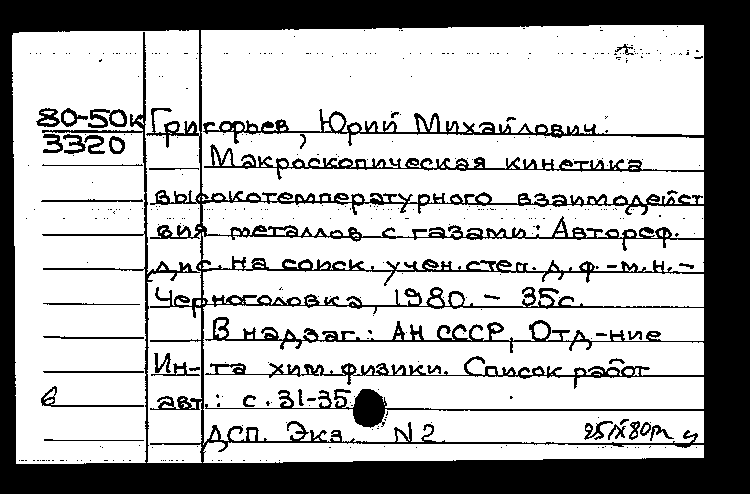 80-50к
3320
Григорьев, Юрий Михайлович.
Макроскопическая кинетика
высокотемпературного взаимодейст
вия металлов с газами: Автореф.
дис. на соиск. учен. степ. д. ф.-м. н. -
Черноголовка, 1980. - 35с.
В надзаг.: АН СССР, Отд-ние
Ин-та хим. физики. Список работ
авт.: с. 31-35
ДСП. Экз. N 2 25/IX80